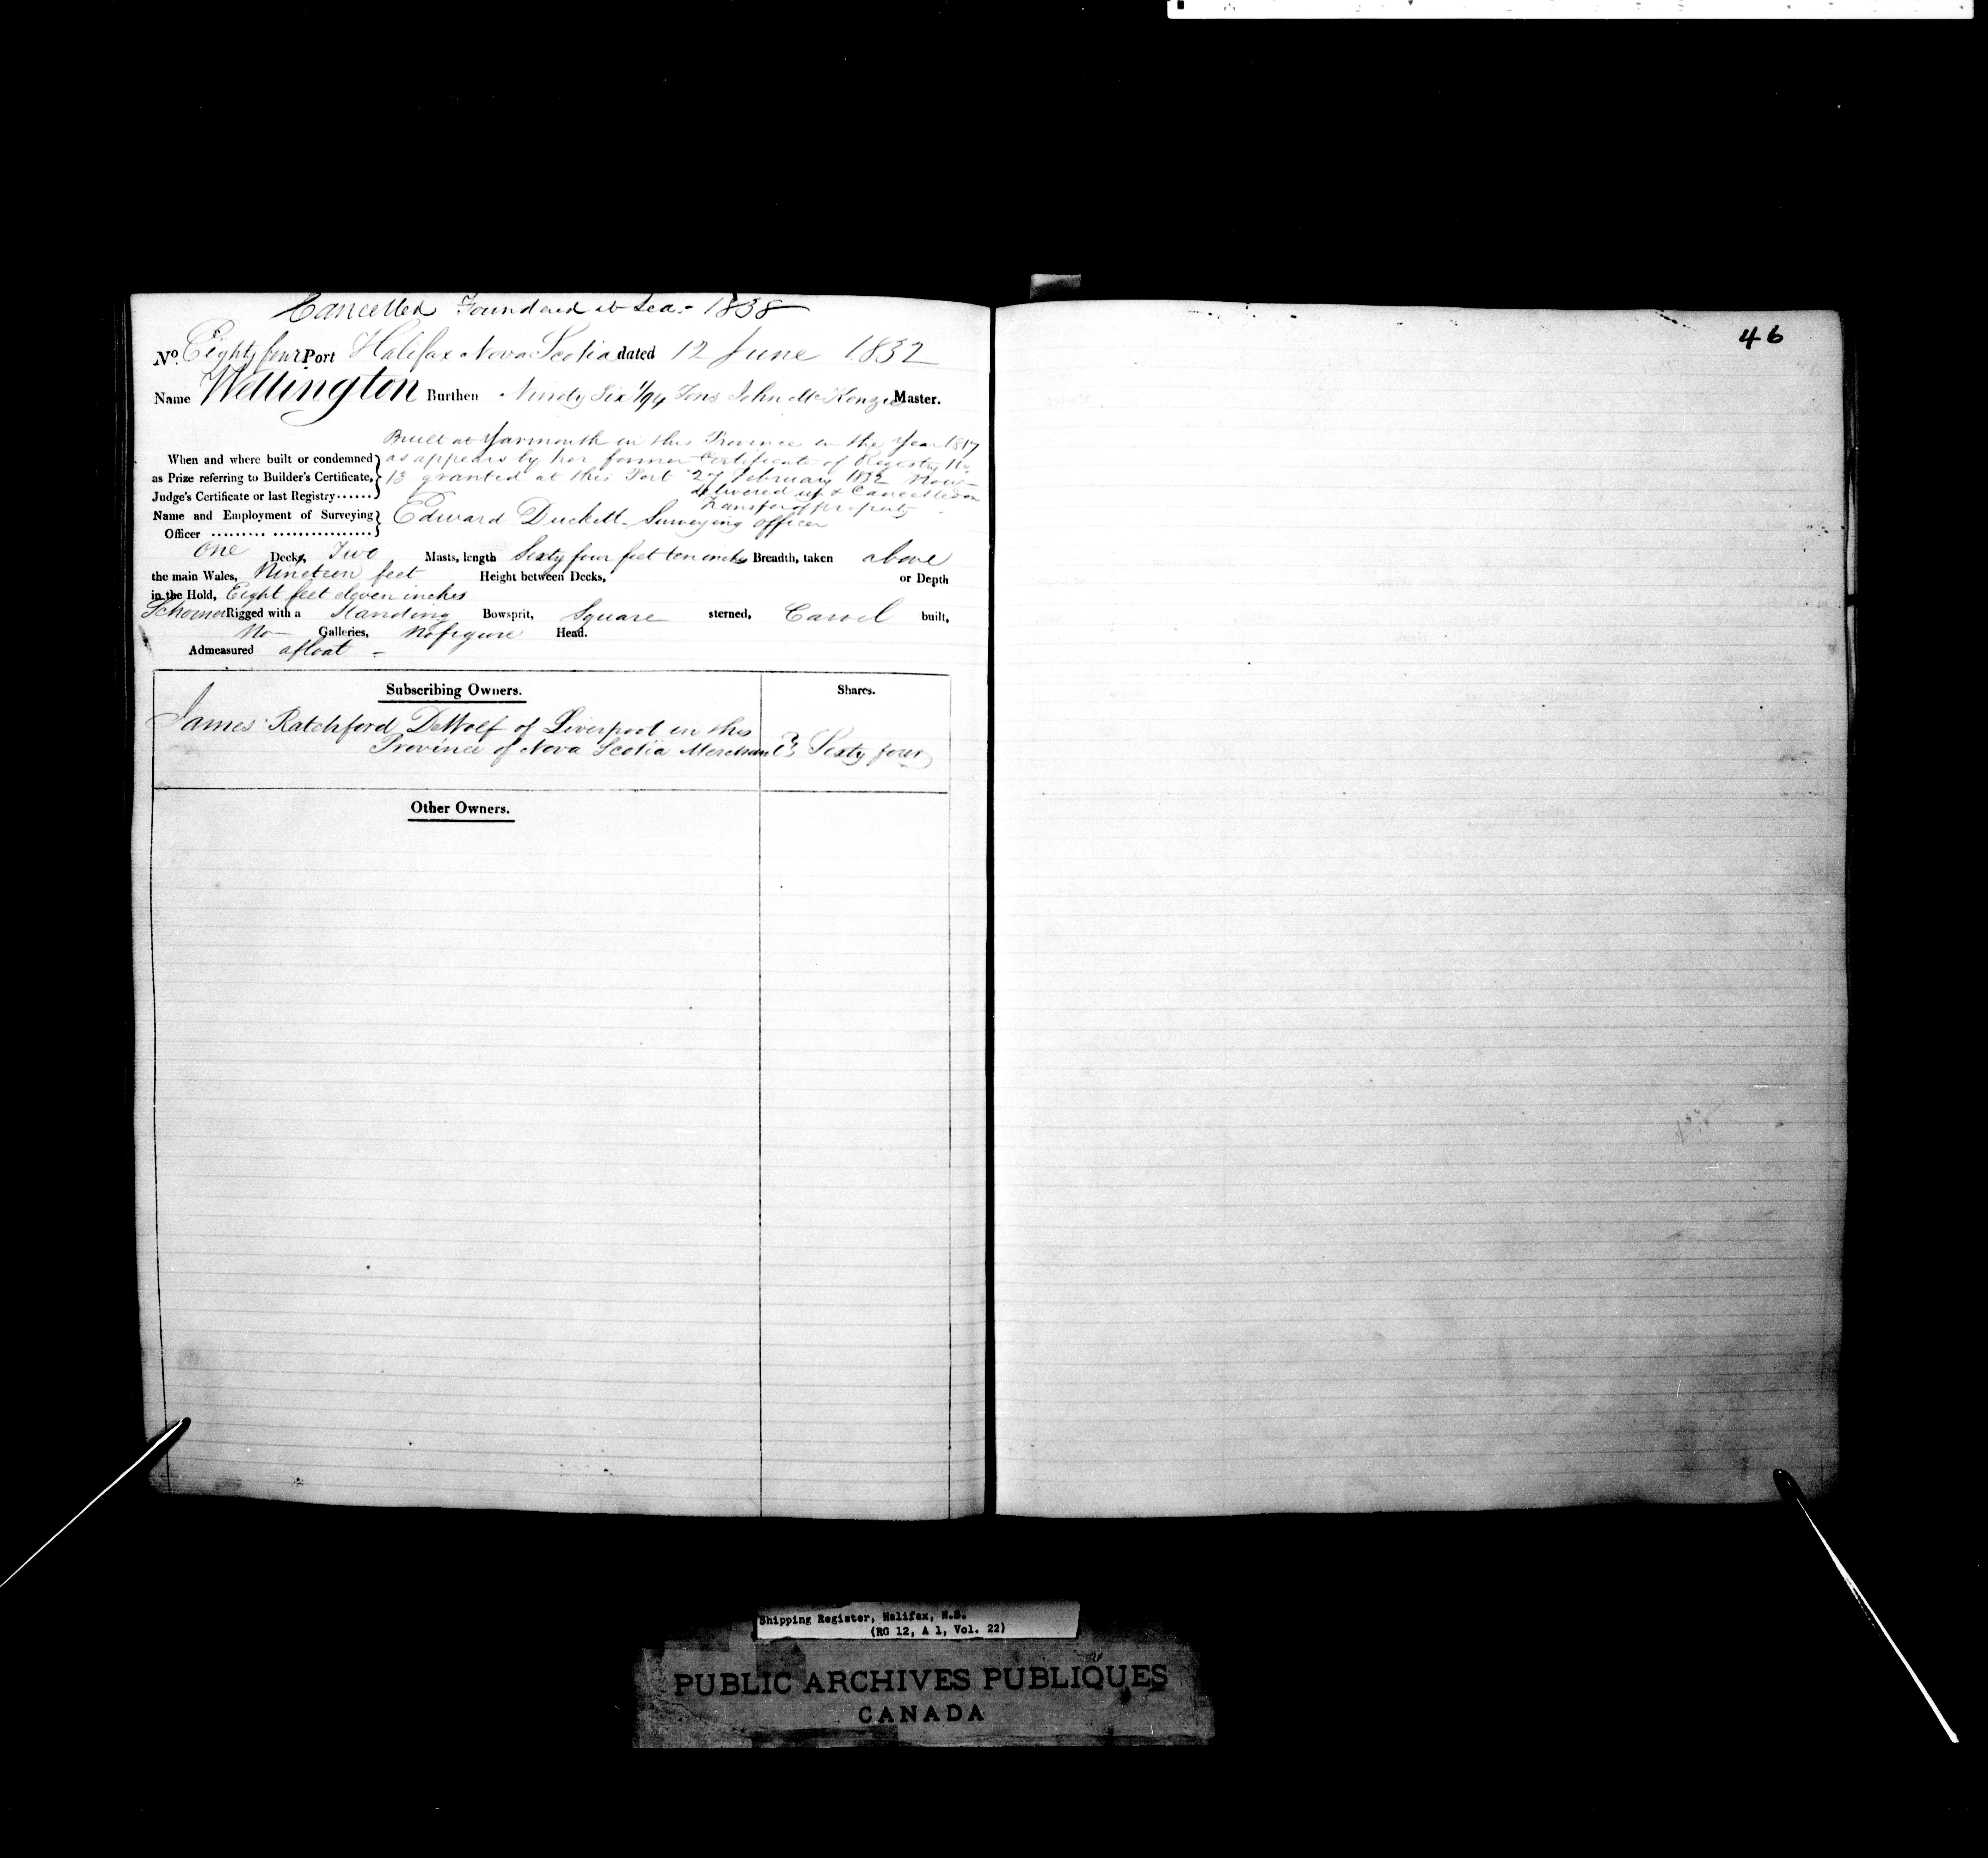 Cancelled Foundered at Sea - 1838
No. Eighty four Port Halifax Nova Scotia dated 12 June 1832
Name Wellington Burthen Ninety Six 1/94 Tons John McKenzie Master.
Built at Yarmouth in this Province in the Year 1817
When and where built or condemned as appears by her former Certificate of Registry No.
as Prize referring to Builder's Certificate, 13 granted at this Port 27 February 1832 now
Judge's Certificate or last Registry...... delivered up & Cancelled on
Transfer of property
Name and Employment of Surveying Edward Duckett Surveying officer
Officer ......... ................
One Decks, Two Masts, length Sixty four feet ten inches Breadth, taken above
the main Wales, Nineteen feet Height between Decks, or Depth
in the Hold, Eight feet eleven inches
Schooner Rigged with a Standing Bowsprit, Square sterned, Carvel built,
No Galleries, No figure Head.
Admeasured afloat -
Subscribing Owners. Shares.
James Ratchford DeWolf of Liverpool in this
Province of Nova Scotia Merchant Sixty four
Other Owners.
46
Shipping Register, Halifax, N.S.
(RG 12, A 1, Vol. 22)
PUBLIC ARCHIVES PUBLIQUES
CANADA